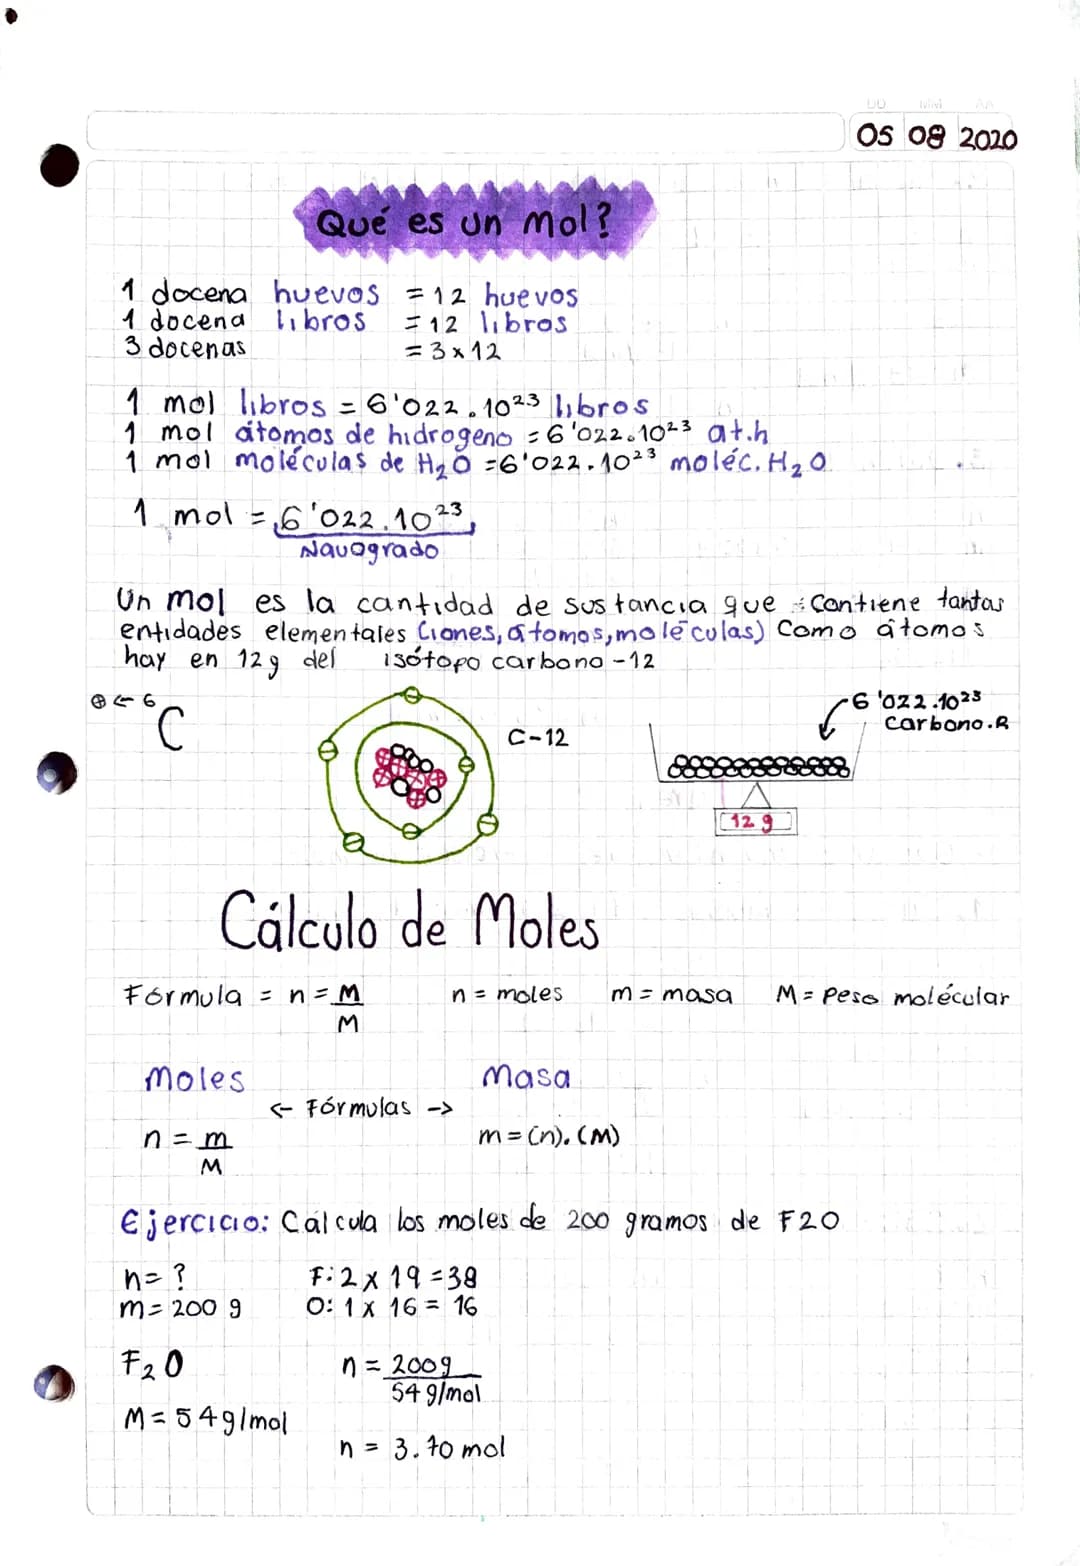 DD MM AA
05 08 2020
Qué es un mol?
1 docena huevos = 12 huevos
1 docena libros = 12 libros
3 docenas = 3 x 12
1 mol libros = 6'022.10²³ libros
1 mol átomos de hidrogeno = 6'022.10²³ at.h
1 mol moléculas de H₂O = 6'022.10²³ moléc. H₂O
1 mol = 6'022.10²³
Navogrado
Un mol es la cantidad de sustancia que contiene tantas
entidades elementales (iones, átomos, moléculas) Como átomos
hay en 12g del isótopo carbono-12
⊕ ← 6 C
C-12
6'022.10²³
Carbono.R
12 g
Cálculo de Moles
Fórmula = n = M/M n = moles m = masa M = Peso molécular
Moles Masa
← Fórmulas →
n = m/M m = (n).(M)
Ejercicio: Calcula los moles de 200 gramos de F2O
n = ? F: 2 x 19 = 38
m = 200 g O: 1 x 16 = 16
F₂O n = 200g/54 g/mol
M = 54g/mol
n = 3.70 mol